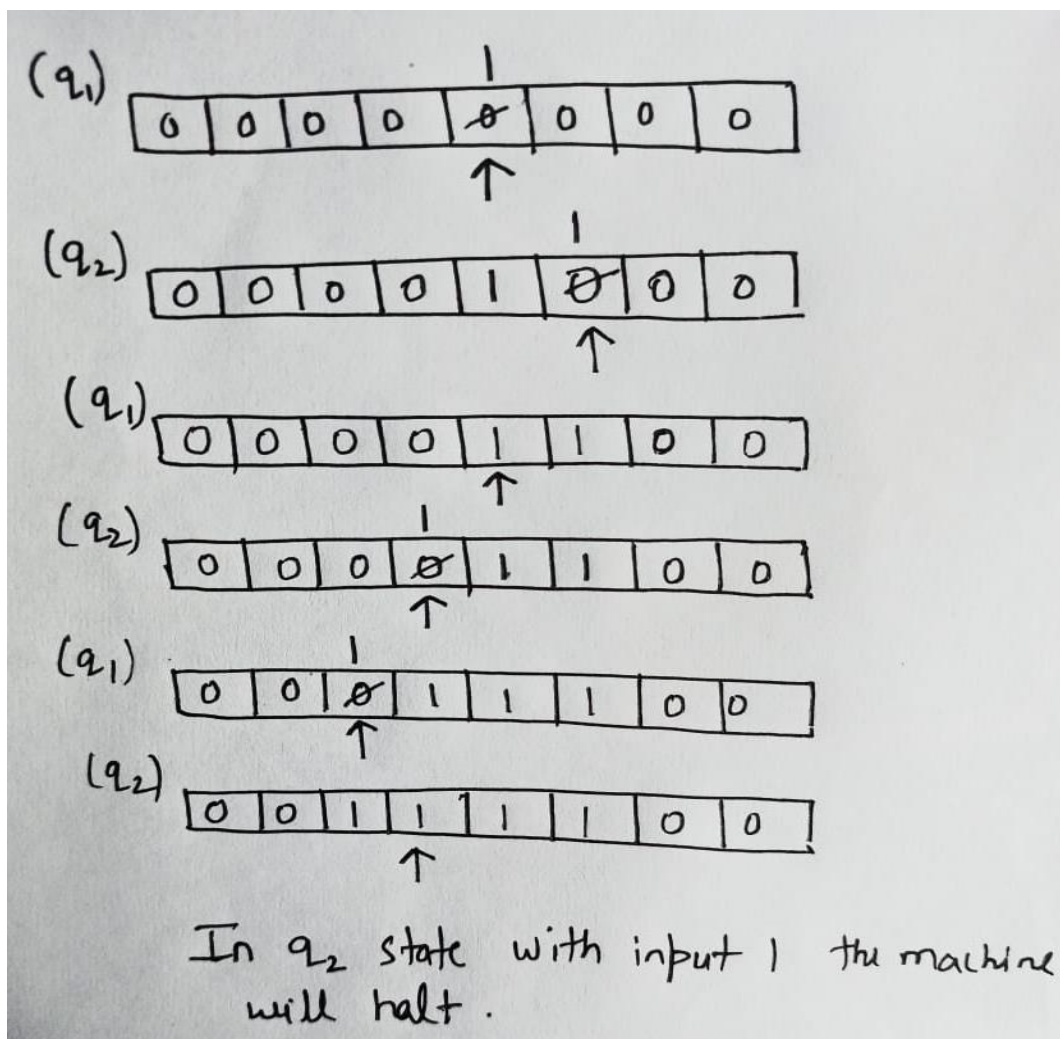 1
(q₁) 0 0 0 0 0 0 0 0
1
(q₂) 0 0 0 0 1 0 0 0
(q₁) 0 0 0 0 1 1 0 0
1
(q₂) 0 0 0 0 1 1 0 0
1
(q₁) 0 0 0 1 1 1 0 0
(q₂) 0 0 1 1 1 1 0 0
In q₂ state with input 1 the machine
will halt.